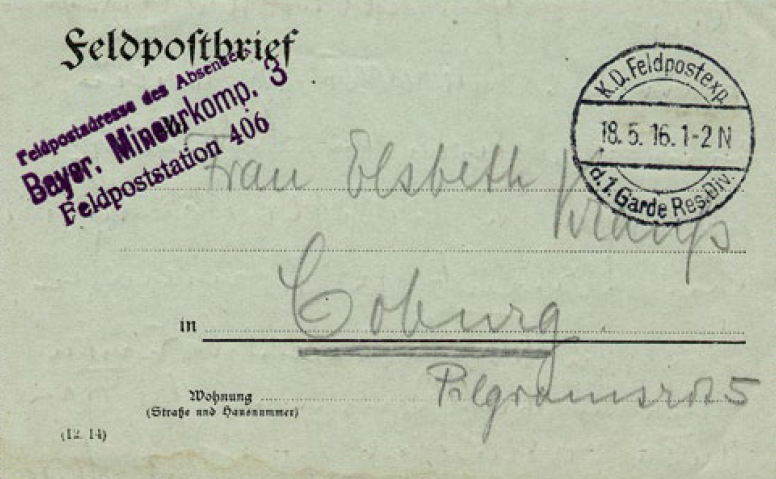 Feldpostbrief
Feldpostadresse des Absenders
Bayer. Mineurkomp. 3
Feldpoststation 406
K.D. Feldpostexp.
18.5.16.1-2 N
d. 1. Garde Res. Div.
Frau Elsbeth
in Coburg.
Wohnung
(Straße und Hausnummer)
5
(12. 14)